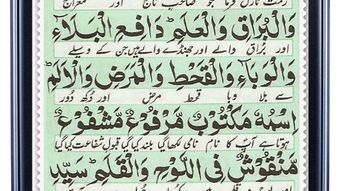 والبراق والعلم دافع البلاء
اور براق والے اور جھنڈے والے ہیں جن کے وسیلے
والوباء والقحط والمرض والالم
سے بلا وبا قحط مرض اور دُکھ دُور
اسمه مكتوب مرفوع مشفوع
ہوتا ہے آپ کا نام نامی لکھا گیا بلند کیا گیا قبول شفاعت کیا گیا
منقوش فی اللوح والقلم سید